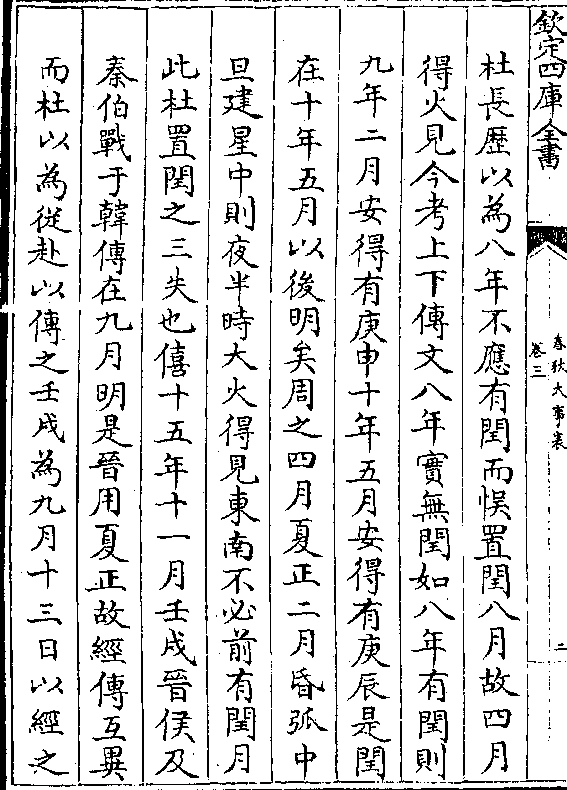 欽定四庫全書
春秋大事表
卷三
二
杜長歴以為八年不應有閏而悞置閏八月故四月
得火見今考上下傳文八年實無閏如八年有閏則
九年二月安得有庚申十年五月安得有庚辰是閏
在十年五月以後明矣周之四月夏正二月昏弧中
旦建星中則夜半時大火得見東南不必前有閏月
此杜置閏之三失也僖十五年十一月壬戌晉侯及
秦伯戰于韓傳在九月明是晉用夏正故經傳互異
而杜以為從赴以傳之壬戌為九月十三日以經之